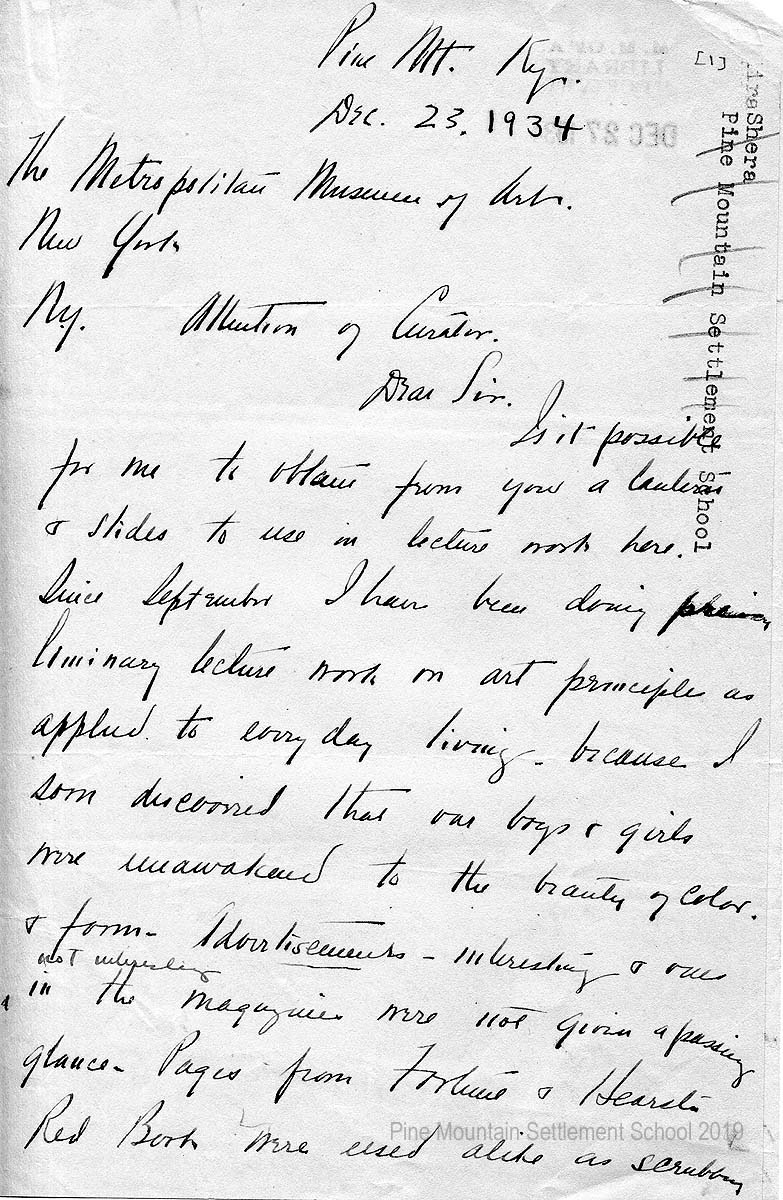 Pine Mt. Ky.
[1]
Dec. 23, 1934
DEC 27
LIBRARY
Pine Mountain Settlement School
The Metropolitan Museum of Art.
New York
N.Y. Attention of Curator.
Dear Sir.
Is it possible
for me to obtain from you a lantern
& slides to use in lecture work here.
Since September I have been doing
liminary lecture work on art principles as
applied to every day living - because I
soon discovered that our boys & girls
were unawakened to the beauty of color.
& form - Advertisements - interesting & ones
not interesting
in the magazines were not given a passing
glance - Pages from Fortune & Hearsts
Red Book were used alike as scrubbing
Pine Mountain Settlement School 2019